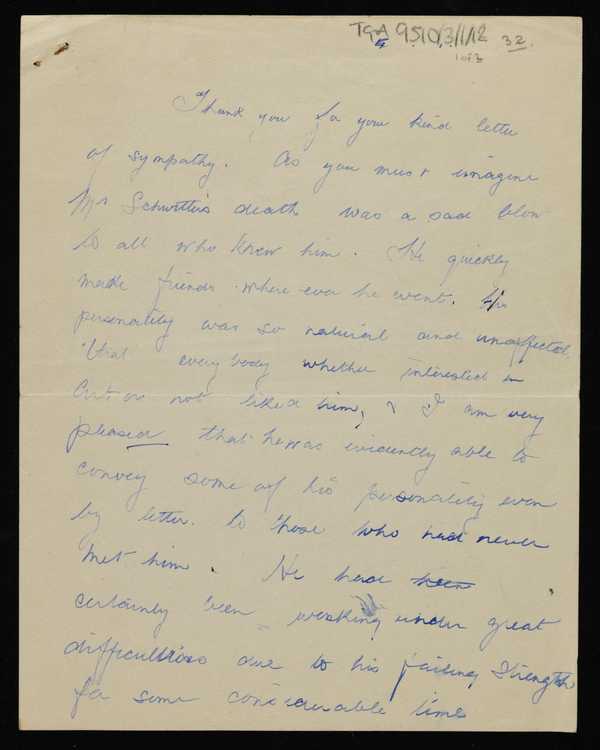 TGA 9510/3/1/12 32.
1 of 3
Thank you for your kind letter
of sympathy. As you must imagine
Mr Schwitters death was a sad blow
to all who knew him. He quickly
made friends where ever he went. His
personality was so natural and unaffected,
that everybody whether interested in
Art or not liked him, & I am very
pleased that he was evidently able to
convey some of his personality even
by letter to those who had never
met him. He had been
certainly been working under great
difficulties due to his failing strength
for some considerable time